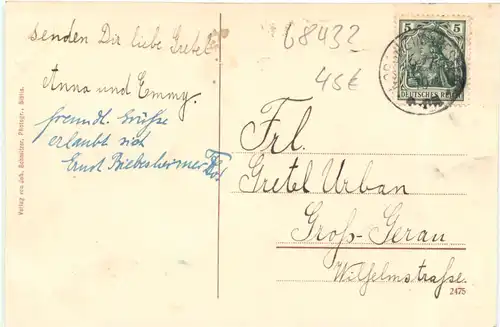 senden Dir liebe Gretel
Anna und Emmy.
freundl. Grüße
erlaubt sich
Ernst Biebesheimer
68432
45€
5 5
DEUTSCHES REICH
Frl.
Gretel Urban
Groß-Gerau
Wilhelmstraße.
2475
Verlag von Joh. Schmelzer, Photogr.,